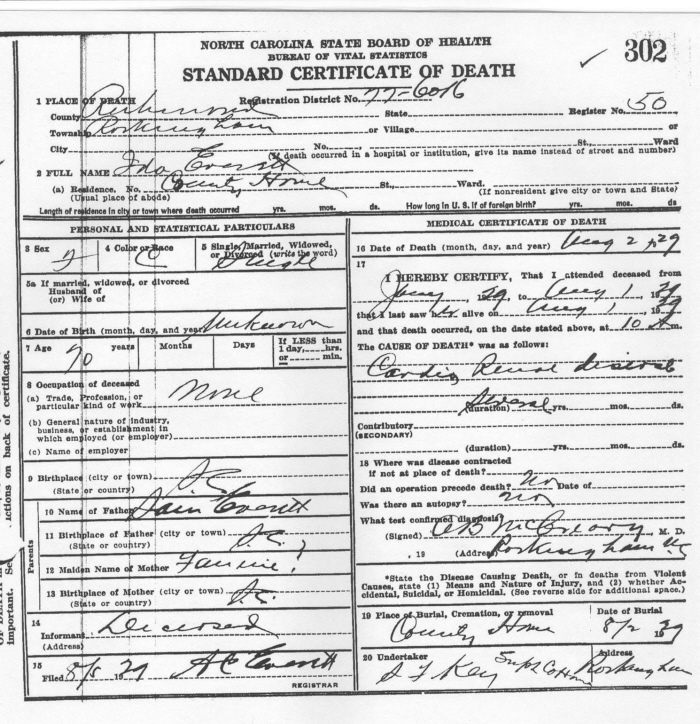 NORTH CAROLINA STATE BOARD OF HEALTH
BUREAU OF VITAL STATISTICS
STANDARD CERTIFICATE OF DEATH
302
1 PLACE OF DEATH Registration District No. 77-6016
County Richmond State Register No. 50
Township Rockingham or Village or
City No. St., Ward
(If death occurred in a hospital or institution, give its name instead of street and number)
2 FULL NAME Ida Everett
(a) Residence. No. County Home St., Ward.
(Usual place of abode) (If nonresident give city or town and State)
Length of residence in city or town where death occurred yrs. mos. ds. How long in U. S. if of foreign birth? yrs. mos. ds.
PERSONAL AND STATISTICAL PARTICULARS
3 Sex F 4 Color or Race C 5 Single, Married, Widowed, or Divorced (write the word) Single
5a If married, widowed, or divorced
Husband of
(or) Wife of
6 Date of Birth (month, day, and year) Unknown
7 Age 70 years Months Days If LESS than 1 day, hrs. or min.
8 Occupation of deceased
(a) Trade, Profession, or particular kind of work None
(b) General nature of industry,
business, or establishment in
which employed (or employer)
(c) Name of employer
9 Birthplace (city or town)
(State or country)
10 Name of Father Everett
11 Birthplace of Father (city or town)
(State or country)
12 Maiden Name of Mother Fannie ?
13 Birthplace of Mother (city or town)
(State or country)
Parents
14
Informant Deceased
(Address)
15
Filed 8/5 1929 A C Everett
REGISTRAR
MEDICAL CERTIFICATE OF DEATH
16 Date of Death (month, day, and year) Aug 2 1929
17
I HEREBY CERTIFY, That I attended deceased from
29, to Aug 1, 1929
that I last saw her alive on Aug 1, 1929
and that death occurred, on the date stated above, at 10 m.
The CAUSE OF DEATH* was as follows:
Cardio Renal disease
Several
(duration) yrs. mos. ds.
Contributory
(SECONDARY)
(duration) yrs. mos. ds.
18 Where was disease contracted
if not at place of death?
Did an operation precede death? No Date of
Was there an autopsy? No
What test confirmed diagnosis?
(Signed) M. D.
, 19 (Address) Rockingham NC
*State the Disease Causing Death, or in deaths from Violent
Causes, state (1) Means and Nature of Injury, and (2) whether Ac-
cidental, Suicidal, or Homicidal. (See reverse side for additional space.)
19 Place of Burial, Cremation, or removal Date of Burial
County Home 8/2 1929
20 Undertaker Address
Key Supt Co Home Rockingham
important. See
ctions on back of certificate.